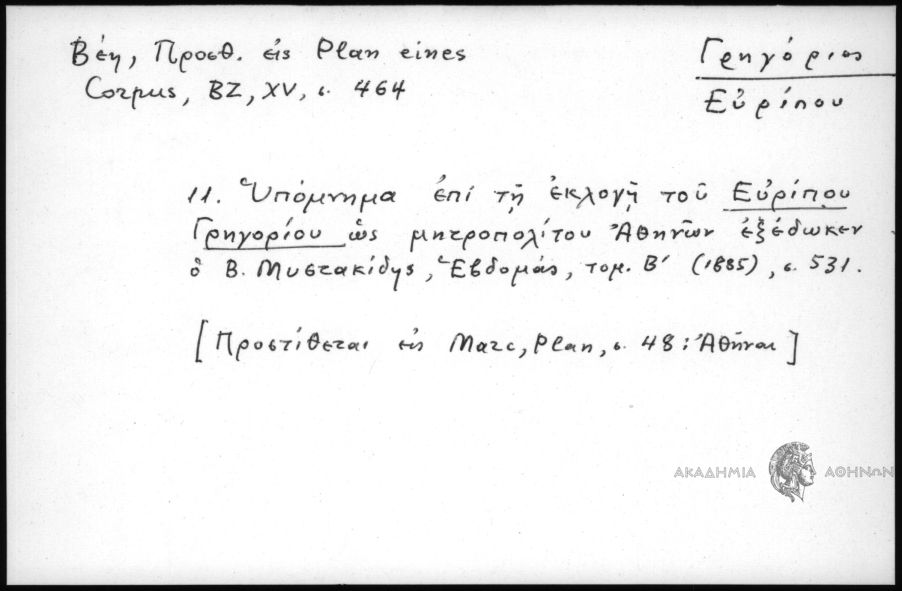 Βέη, Προσθ. εἰς Plan eines
Corpus, BZ, XV, σ. 464
Γρηγόριος
Εὐρίπου
11. Ὑπόμνημα ἐπί τῇ ἐκλογῇ τοῦ Εὐρίπου
Γρηγορίου ὡς μητροπολίτου Ἀθηνῶν ἐξέδωκεν
ὁ Β. Μυστακίδης, Ἑβδομάς, τομ. Β' (1885), σ. 531.
[Προστίθεται εἰς Marc, Plan, σ. 48: Ἀθῆναι]
ΑΚΑΔΗΜΙΑ ΑΘΗΝΩΝ